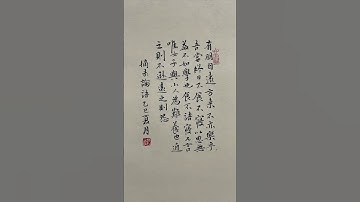 有朋自遠方來不亦樂乎
吾嘗終日不食不寢以思無
益不如學也食不語寢不言
唯女子與小人為難養也近
之則不遜遠之則怨
摘录論語乙巳夏月